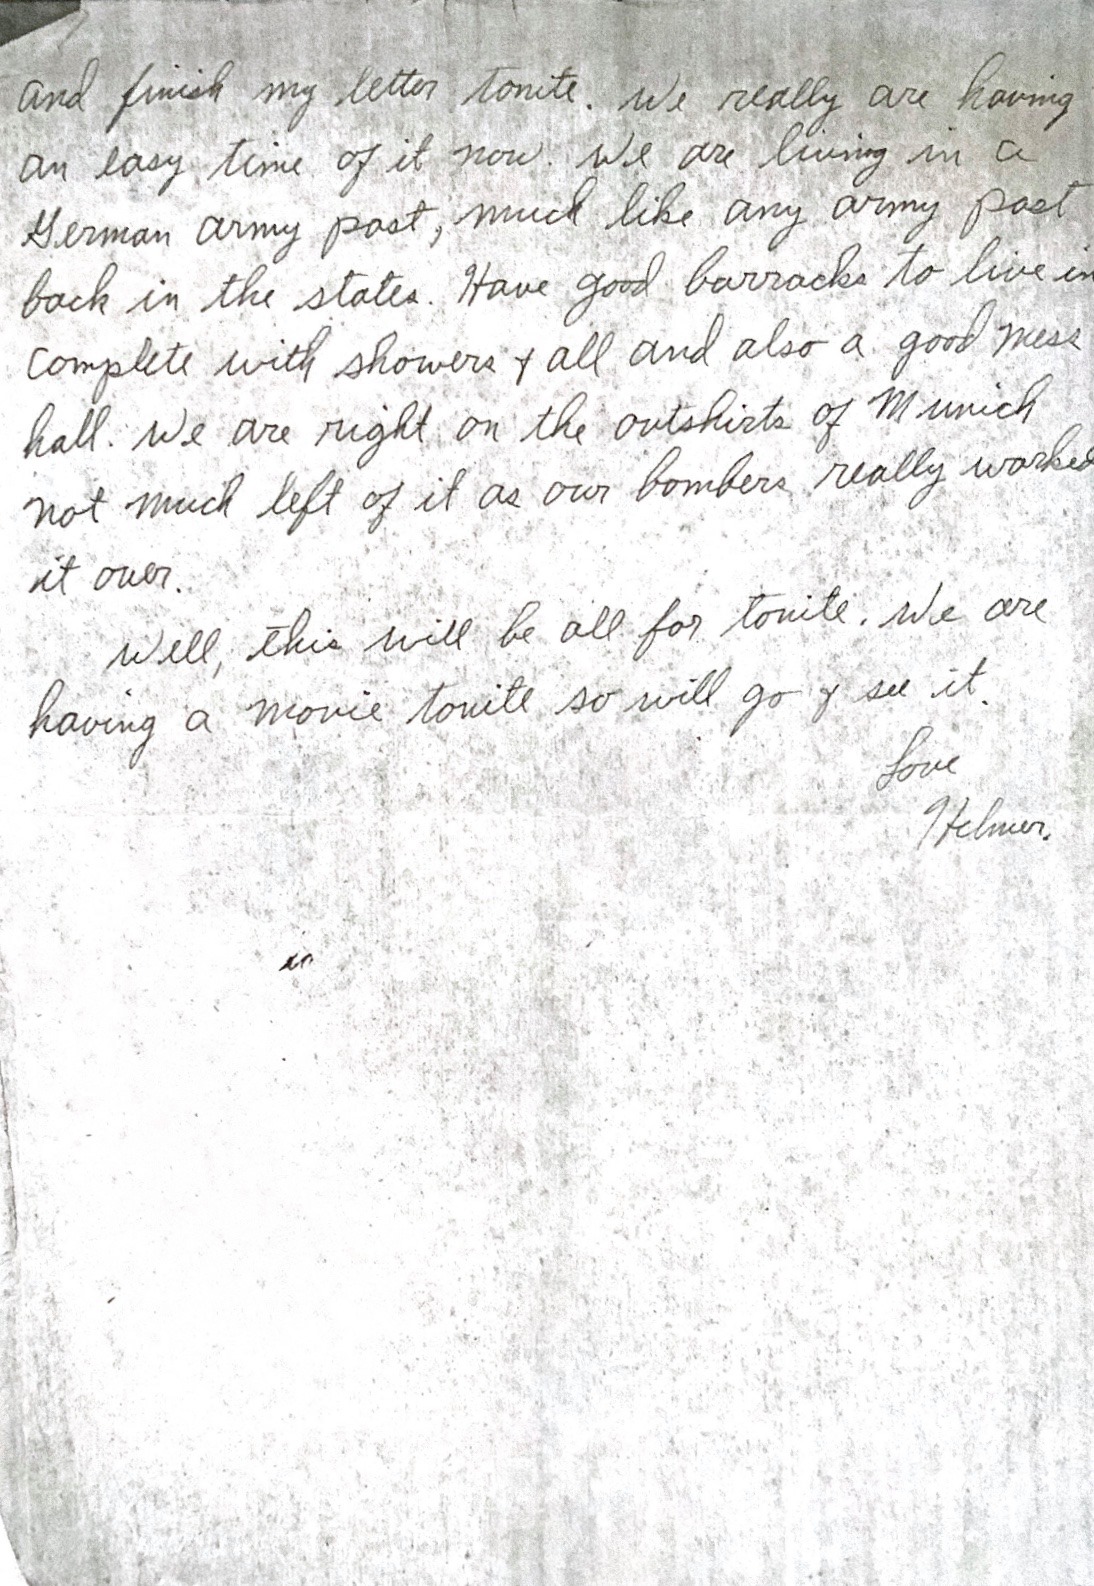 and finish my letter tonite. We really are having
an easy time of it now. We are living in a
German army post, much like any army post
back in the states. Have good barracks to live in
complete with showers & all and also a good mess
hall. We are right on the outskirts of Munich
not much left of it as our bombers really worked
it over.
Well, this will be all for tonite. We are
having a movie tonite so will go & see it.
Love
Helmer.